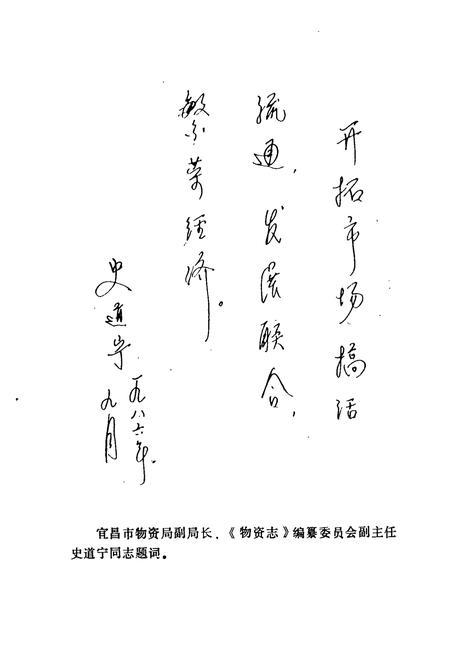 开拓市场搞活
流通,发展联合,
繁荣经济。
史道宁
一九八六年
九月
宜昌市物资局副局长、《物资志》编纂委员会副主任
史道宁同志题词。